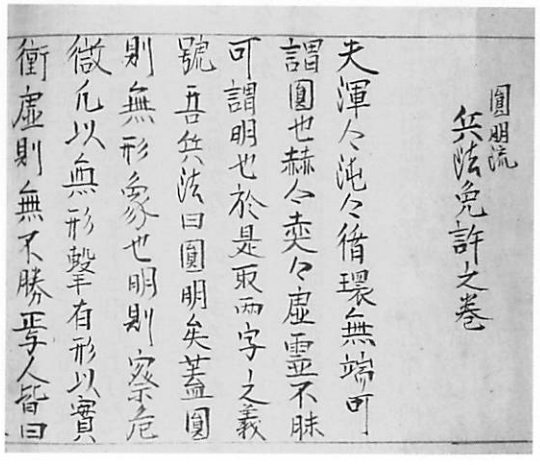 圓明流
兵法免許之卷
夫渾々沌々循環無端可
謂圓也赫々奕々虛靈不昧
可謂明也於是取兩字之義
號吾兵法曰圓明矣蓋圓
則無形象也明則察危
微凡以無形擊有形以實
衝虛則無不勝 人皆曰